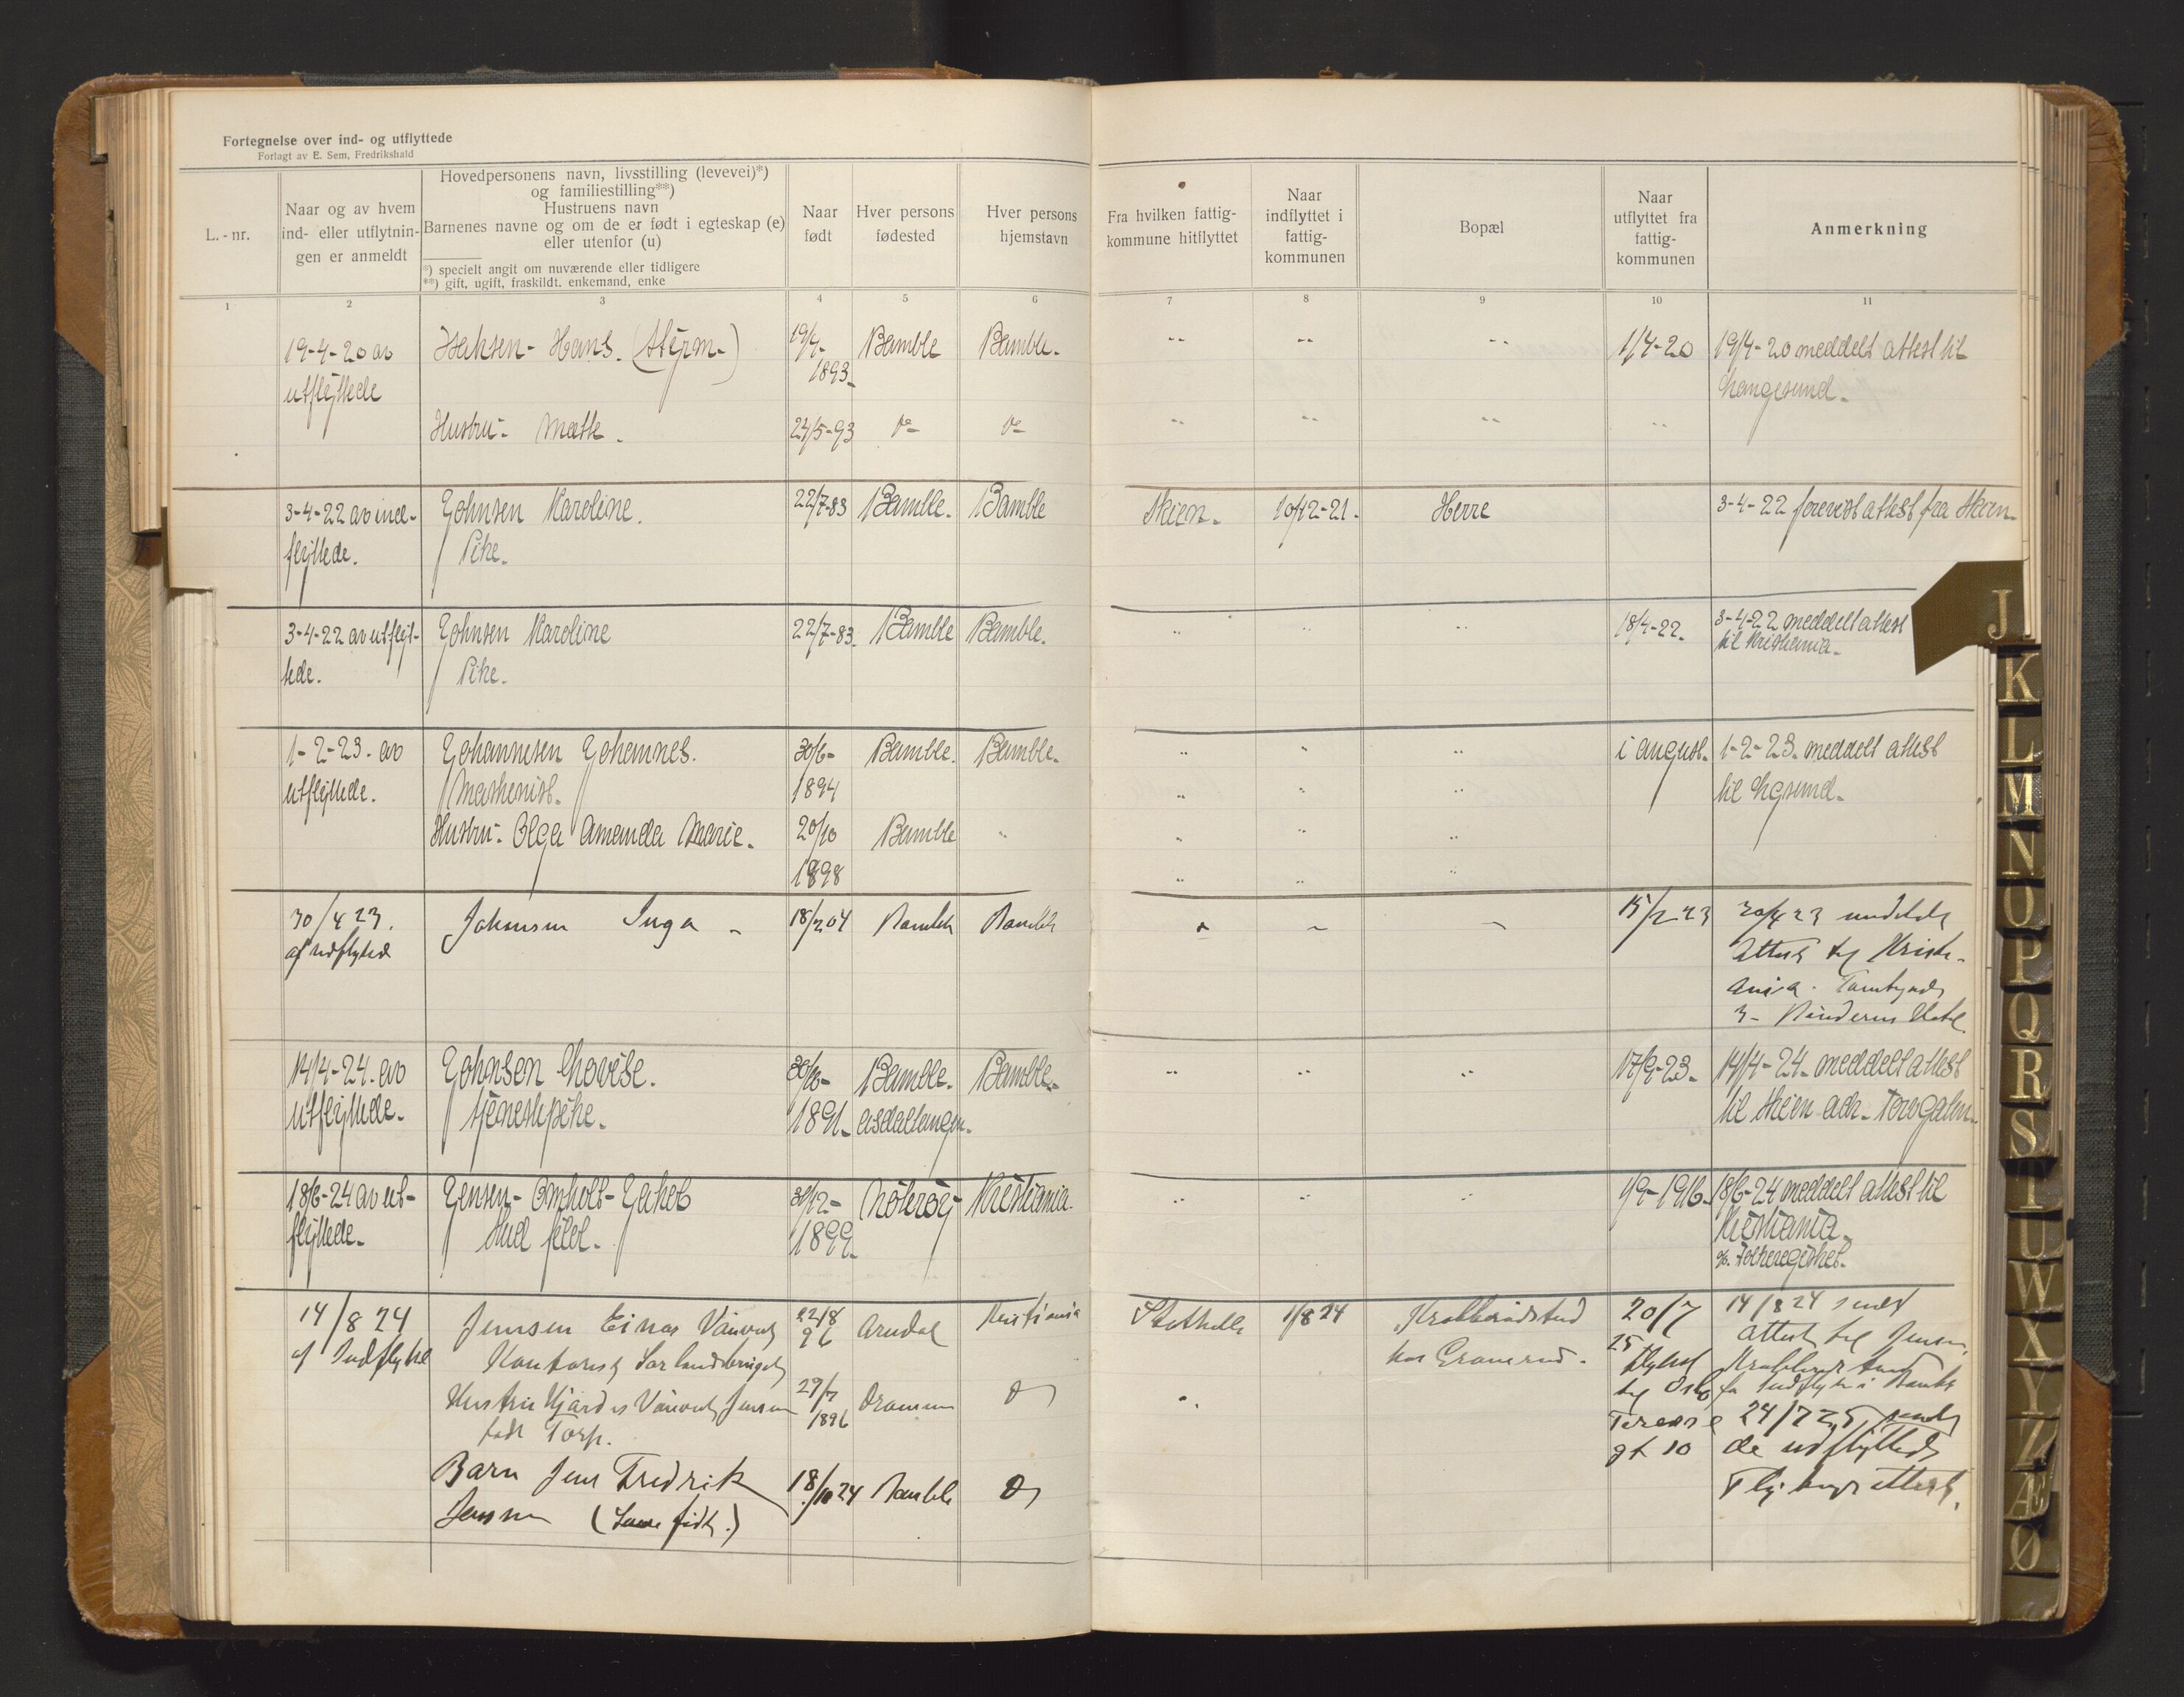 Fortegnelse over ind- og utflyttede
Forlagt av E. Sem, Fredrikshald
L.-nr.
Naar og av hvem
ind- eller utflytnin-
gen er anmeldt
Hovedpersonens navn, livsstilling (levevei)*)
og familiestilling**)
Hustruens navn
Barnenes navne og om de er født i egteskap (e)
eller utenfor (u)
*) specielt angit om nuværende eller tidligere
**) gift, ugift, fraskildt, enkemand, enke
Naar
født
Hver persons
fødested
Hver persons
hjemstavn
Fra hvilken fattig-
kommune hitflyttet
Naar
indflyttet i
fattig-
kommunen
Bopæl
Naar
utflyttet fra
fattig-
kommunen
Anmerkning
1 2 3 4 5 6 7 8 9 10 11
19-4-20 av
utflyttede
Isaksen - Hans. (Styrm-)
19/4-
1893-
Bamble
Bamble.
1/4-20
19/4-20 meddelt attest til
Langesund.
Hustru - Mathe.
24/5-93
Do
Do
3-4-22 av ind-
flyttede.
Johnsen Karoline.
Pike.
22/7-83
Bamble.
Bamble
Skien.
10/12-21.
Herre
3-4-22 forevist attest fra Skien.
3-4-22 av utflyt-
tede.
Johnsen Karoline
Pike.
22/7-83.
Bamble
Bamble.
18/4-22.
3-4-22 meddelt attest
til Kristiania.
1-2-23. av
utflyttede.
Johannesen Johannes.
Maskinist.
30/6-
1894
Bamble.
Bamble.
i august.
1-2-23. meddelt attest
til Lgsund.
Hustru - Olga Amanda Marie.
20/10
1898
Bamble
30/4 23.
af udflyted
Johnsen Inga -
18/2 04
Bamble
Bamble
15/2 23
30/4 23 meddelt
Attest til Kristi-
ania.
14/4-24. av
utflyttede.
Johnsen Lovise.
tjenestepike.
30/10-
1891-
Bamble.
Asdaltangen.
Bamble.
17/9-23.
14/4-24. meddelt attest
til Skien adr.
18/6-24 av ut-
flyttede.
Jensen - Omholt - Jakob
30/12-
1899.
Nøterøy
Kristiania.
1/9-1916.
18/6-24 meddelt attest til
Kristiania.
Folkeregistret.
14/8 24
af Indflyttet
Jensen Einar
Kontorist
22/8
96
Arndal
Kristiania
Stathelle
1/8 24
hos Granerud.
20/7
25
flyttet
til Oslo
Teresse
gt 10
14/8 24 sendt
Attest til Jensen,
Hustru Hjørdis Jensen
født Torp.
29/7
1896
Drammen
Do
24/7 25 sendt
de udflyttede
Barn Jens Fredrik
Jensen
18/10 24
Bamble
Do
J
K
L
M
N
O
P
Q
R
S
T
U
W
X
Y
Z
Æ
Ø